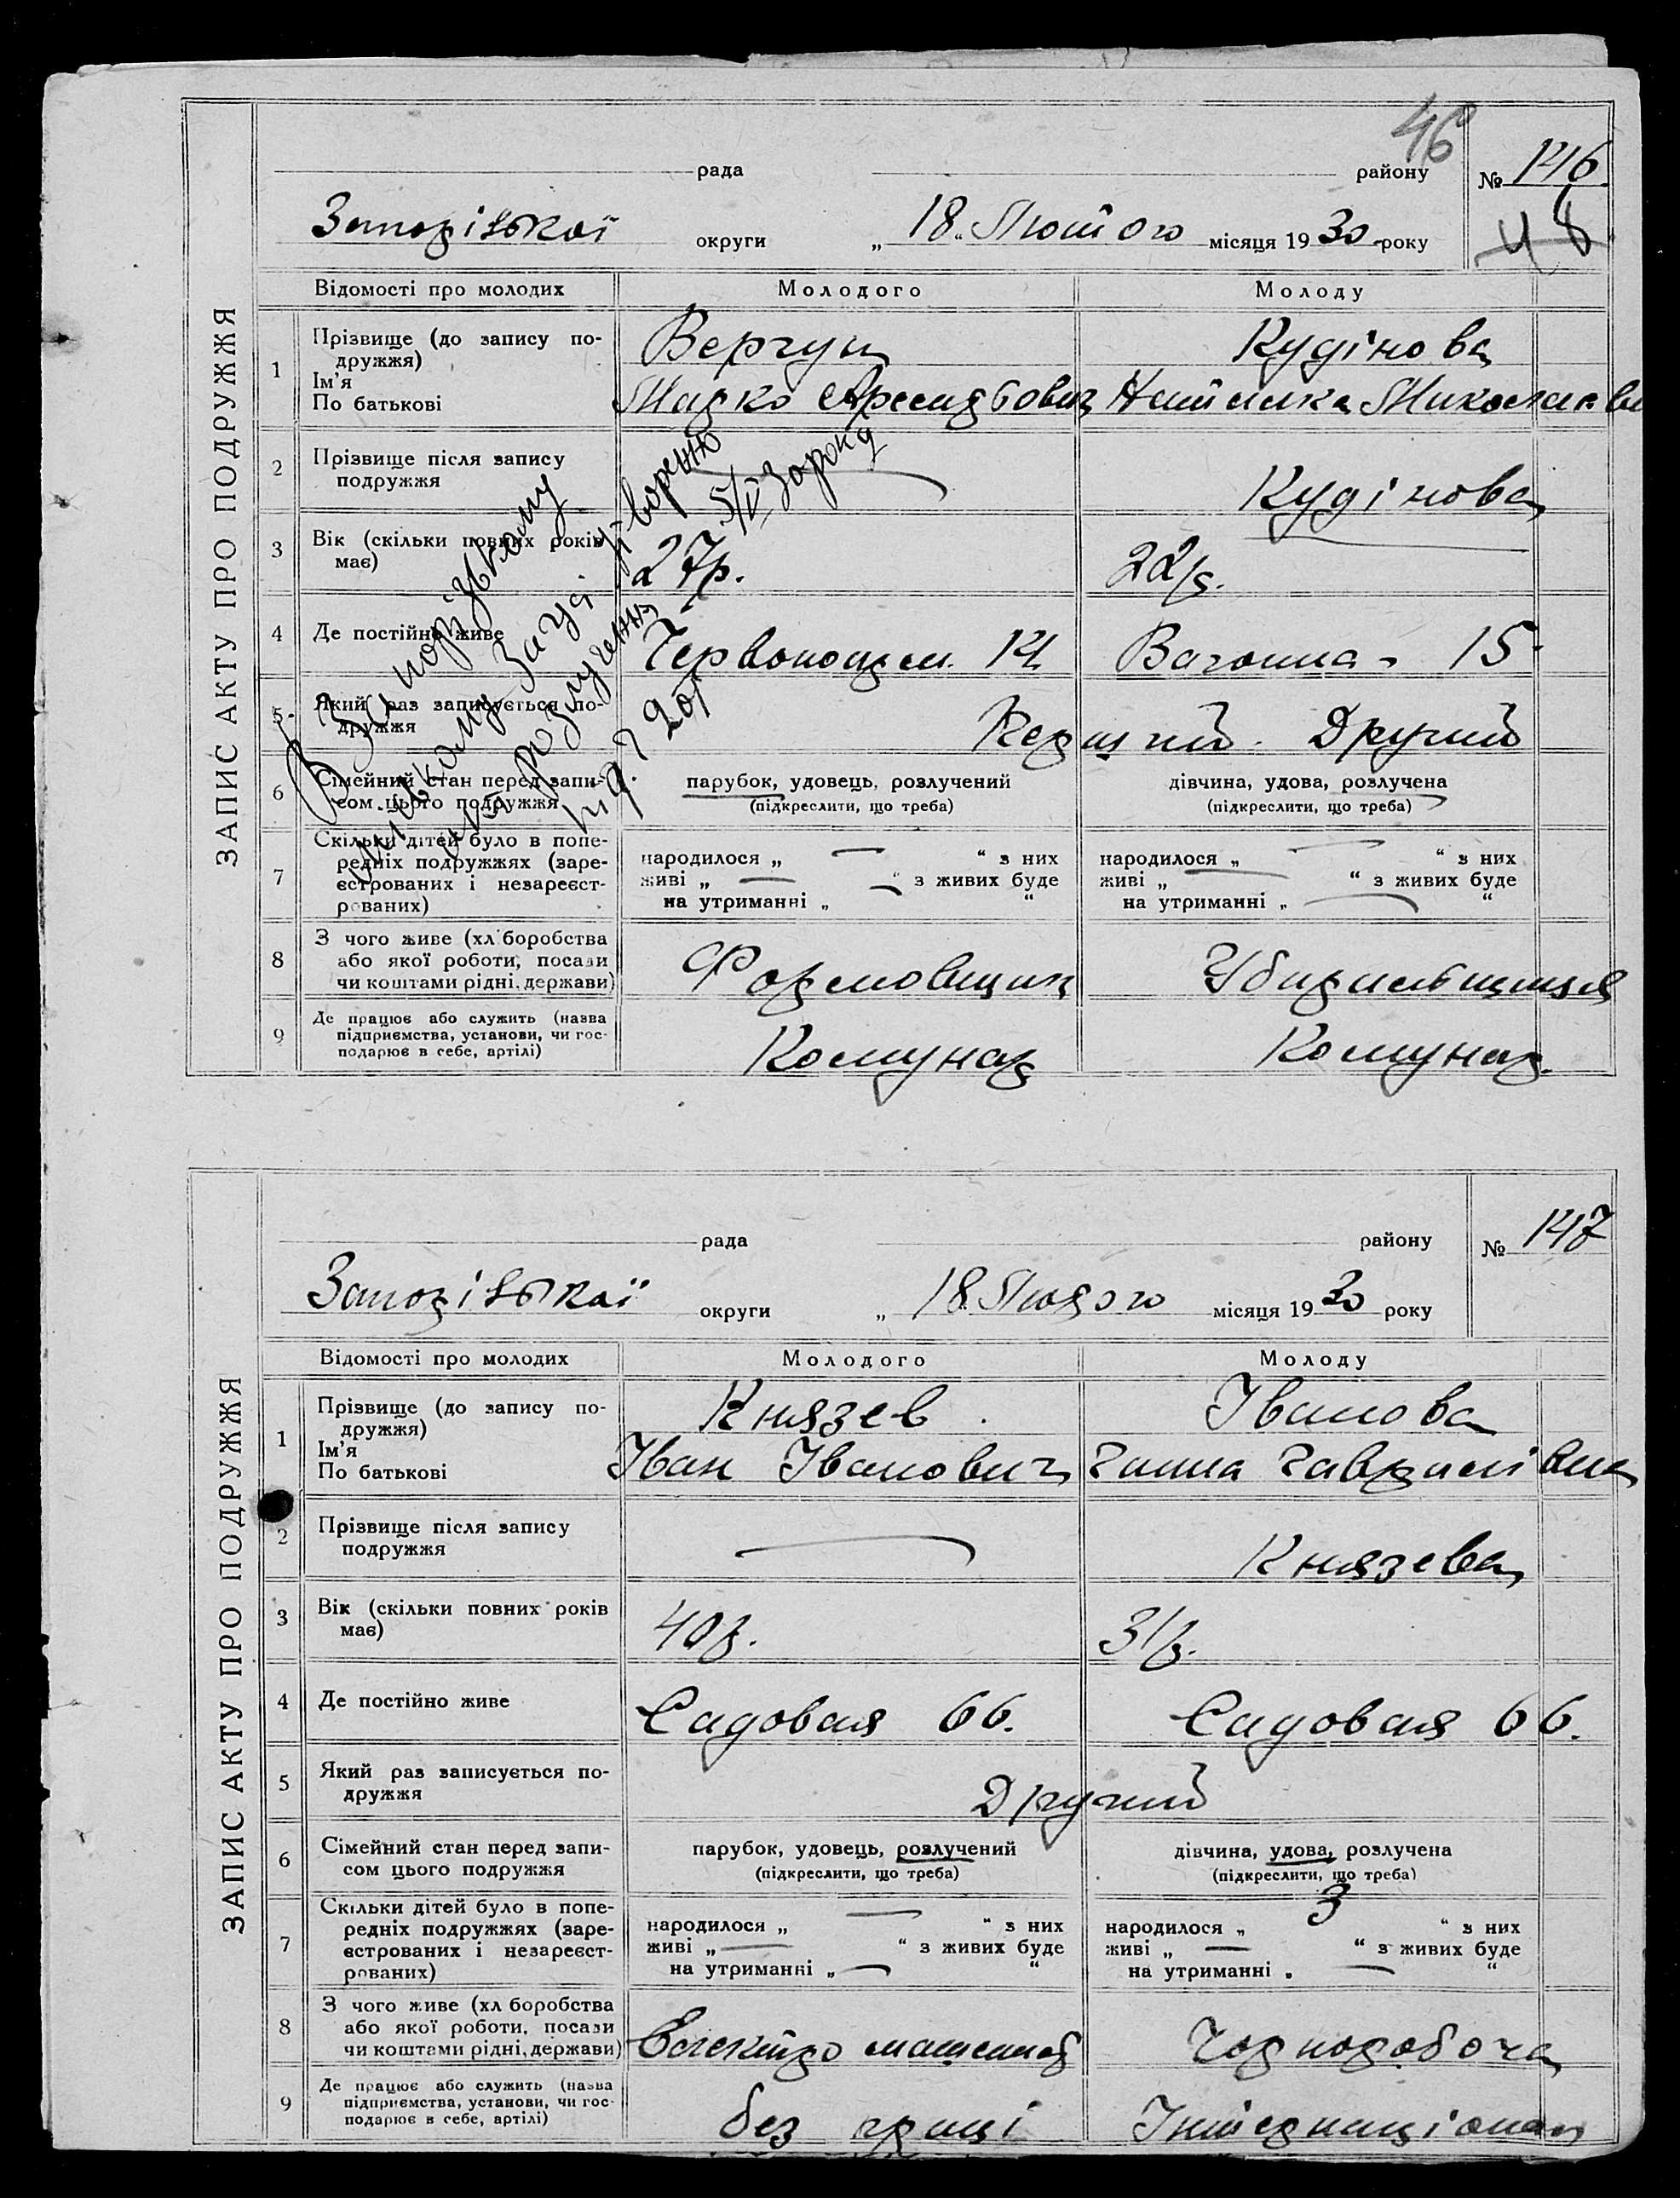 ЗАПИС АКТУ ПРО ПОДРУЖЖЯ
46
рада району № 146
48
Запорізької округи „18“ Лютого місяця 1930 року
Відомості про молодих Молодого Молоду
1 Прізвище (до запису по-
дружжя)
Ім'я
По батькові
Вергун Кудінова
Марко Наталка Миколаївна
2 Прізвище після запису
подружжя
Кудінова
3 Вік (скільки повних років
має)
27р. 22р.
4 Де постійно живе
Червоноарм. 14 Вагонна - 15
5 Який раз записується по-
дружжя
Перший. Другий
6 Сімейний стан перед запи-
сом цього подружжя
парубок, удовець, розлучений дівчина, удова, розлучена
(підкреслити, що треба) (підкреслити, що треба)
7 Скільки дітей було в попе-
редніх подружжях (заре-
єстрованих і незареєст-
рованих)
народилося „ — “ з них народилося „ — “ з них
живі „ — “ з живих буде живі „ — “ з живих буде
на утриманні „ — “ на утриманні „ — “
8 З чого живе (хліборобства
або якої роботи, посади
чи коштами рідні, держави)
Формовщик
9 Де працює або служить (назва
підприємства, установи, чи гос-
подарює в себе, артілі)
Комунар Комунар.
В Запорізькому
міському Загсі
акт розлучення
під. № 201
5/V 30 року
ЗАПИС АКТУ ПРО ПОДРУЖЖЯ
рада району № 147
Запорізької округи „18 Лютого місяця 1930 року
Відомості про молодих Молодого Молоду
1 Прізвище (до запису по-
дружжя)
Ім'я
По батькові
Князев Іванова
Іван Іванович Ганна Гаврилівна
2 Прізвище після запису
подружжя
— Князева
3 Вік (скільки повних років
має)
40р. 31р.
4 Де постійно живе
Садовая 66. Садовая 66.
5 Який раз записується по-
дружжя
Другий
6 Сімейний стан перед запи-
сом цього подружжя
парубок, удовець, розлучений дівчина, удова, розлучена
(підкреслити, що треба) (підкреслити, що треба)
7 Скільки дітей було в попе-
редніх подружжях (заре-
єстрованих і незареєст-
рованих)
народилося „ — “ з них народилося „ 3 “ з них
живі „ — “ з живих буде живі „ — “ з живих буде
на утриманні „ — “ на утриманні „ — “
8 З чого живе (хліборобства
або якої роботи, посади
чи коштами рідні, держави)
Чорноробоча
9 Де працює або служить (назва
підприємства, установи, чи гос-
подарює в себе, артілі)
без праці Інтернаціонал